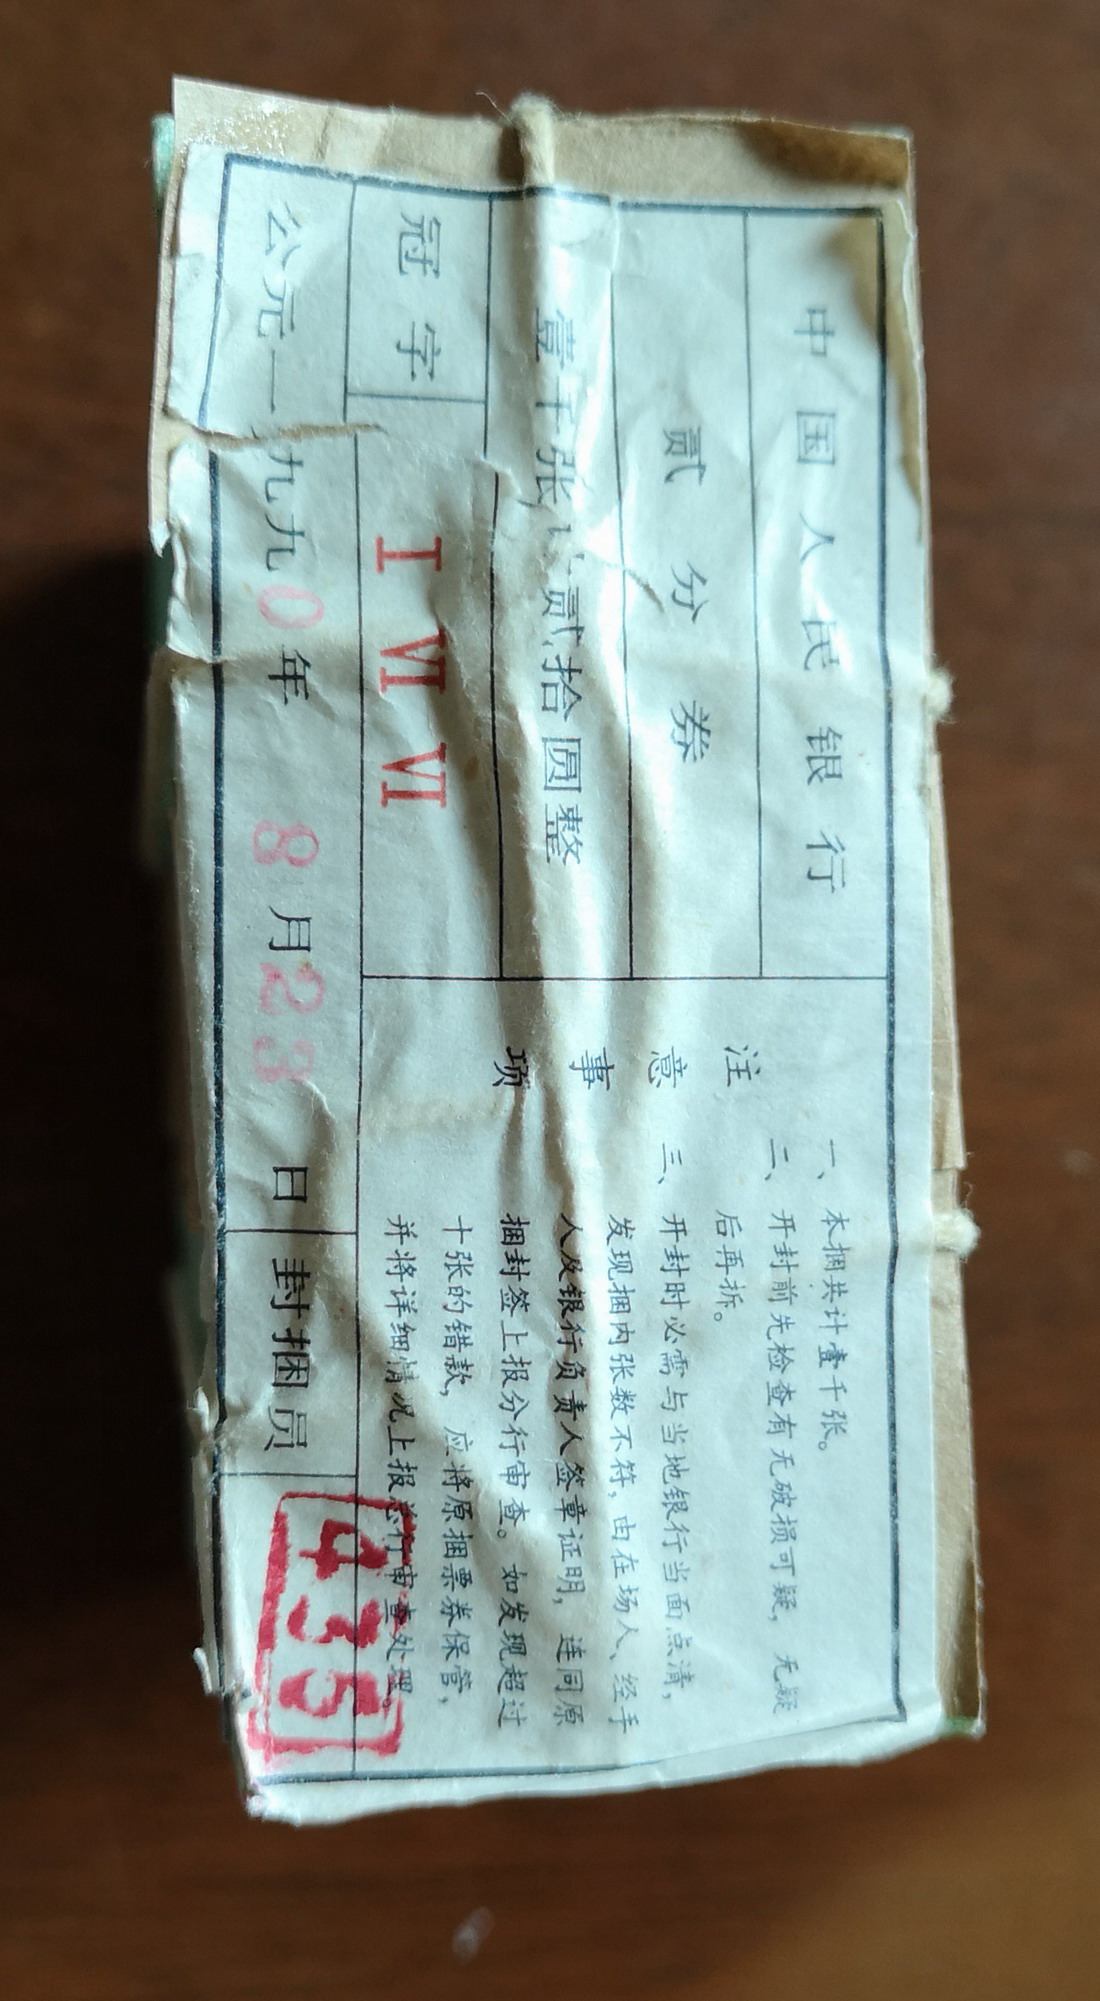 中国人民银行
贰分券
壹千张计贰拾圆整
冠字 I VI VI
注意事项
一、本捆共计壹千张。
二、开封前先检查有无破损可疑，无疑
后再拆。
三、开封时必需与当地银行当面点清，
发现捆内张数不符，由在场人、经手
人及银行负责人签章证明，连同原
捆封签上报分行审查。如发现超过
十张的错款，应将原捆票券保管，
并将详细情况上报总行审查处理。
公元一九九0年8月23日 封捆员 435